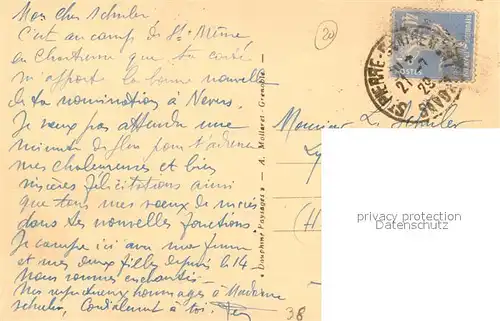 Mon cher Schuler
C'est au camp de St Même
en Chartreuse que ta carte
m'apport la bonne nouvelle
de ta nomination à Nevers.
Je veux pas attendre une
minute de plus pour t'adresser
mes chaleureuses et bien
sincères félicitations ainsi
que tous mes vœux de succès
dans tes nouvelles fonctions.
Je campe ici avec ma femme
et mes deux filles depuis le 14
Nous sommes enchantés -
Mes respectueux hommages à Madame
Schuler, Cordialement à toi.
Dauphiné Paysages - A. Mollaret - Grenoble
Monsieur L. Schuler
Ly
(H
20
POSTES
ST PIERRE
38
privacy protection
Datenschutz